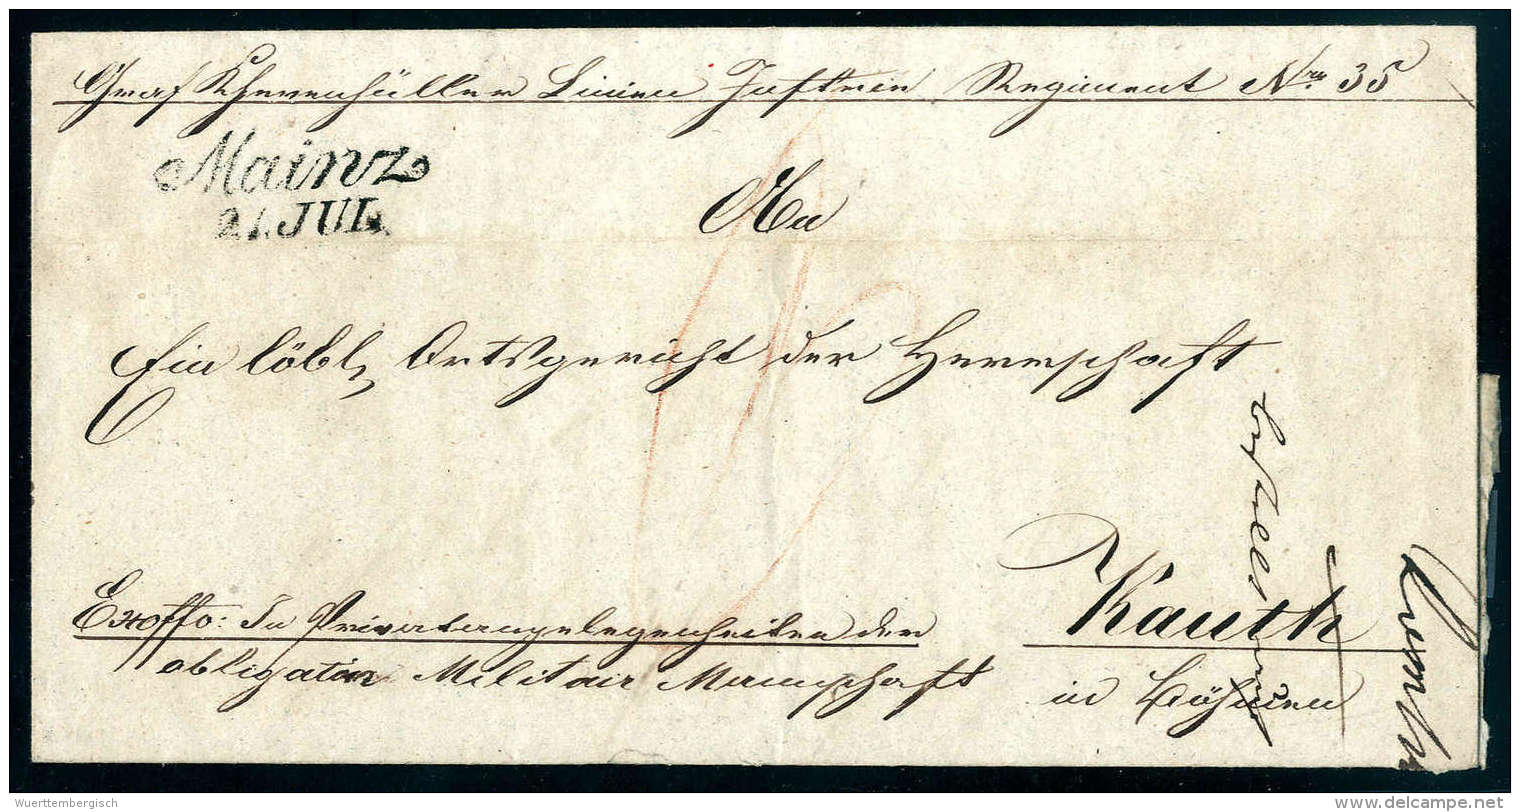 Graf Khevenhüller Linien Inftrie Regiment Nro 35
Mainz
21. JUL.
An
Ein löbl. Ortsgericht der Herrschaft
Kauth
in Böhmen
Exoffo: In Privatangelegenheiten der
obligaten Militair Mannschaft
Wuerttembergisch
www.delcampe.net